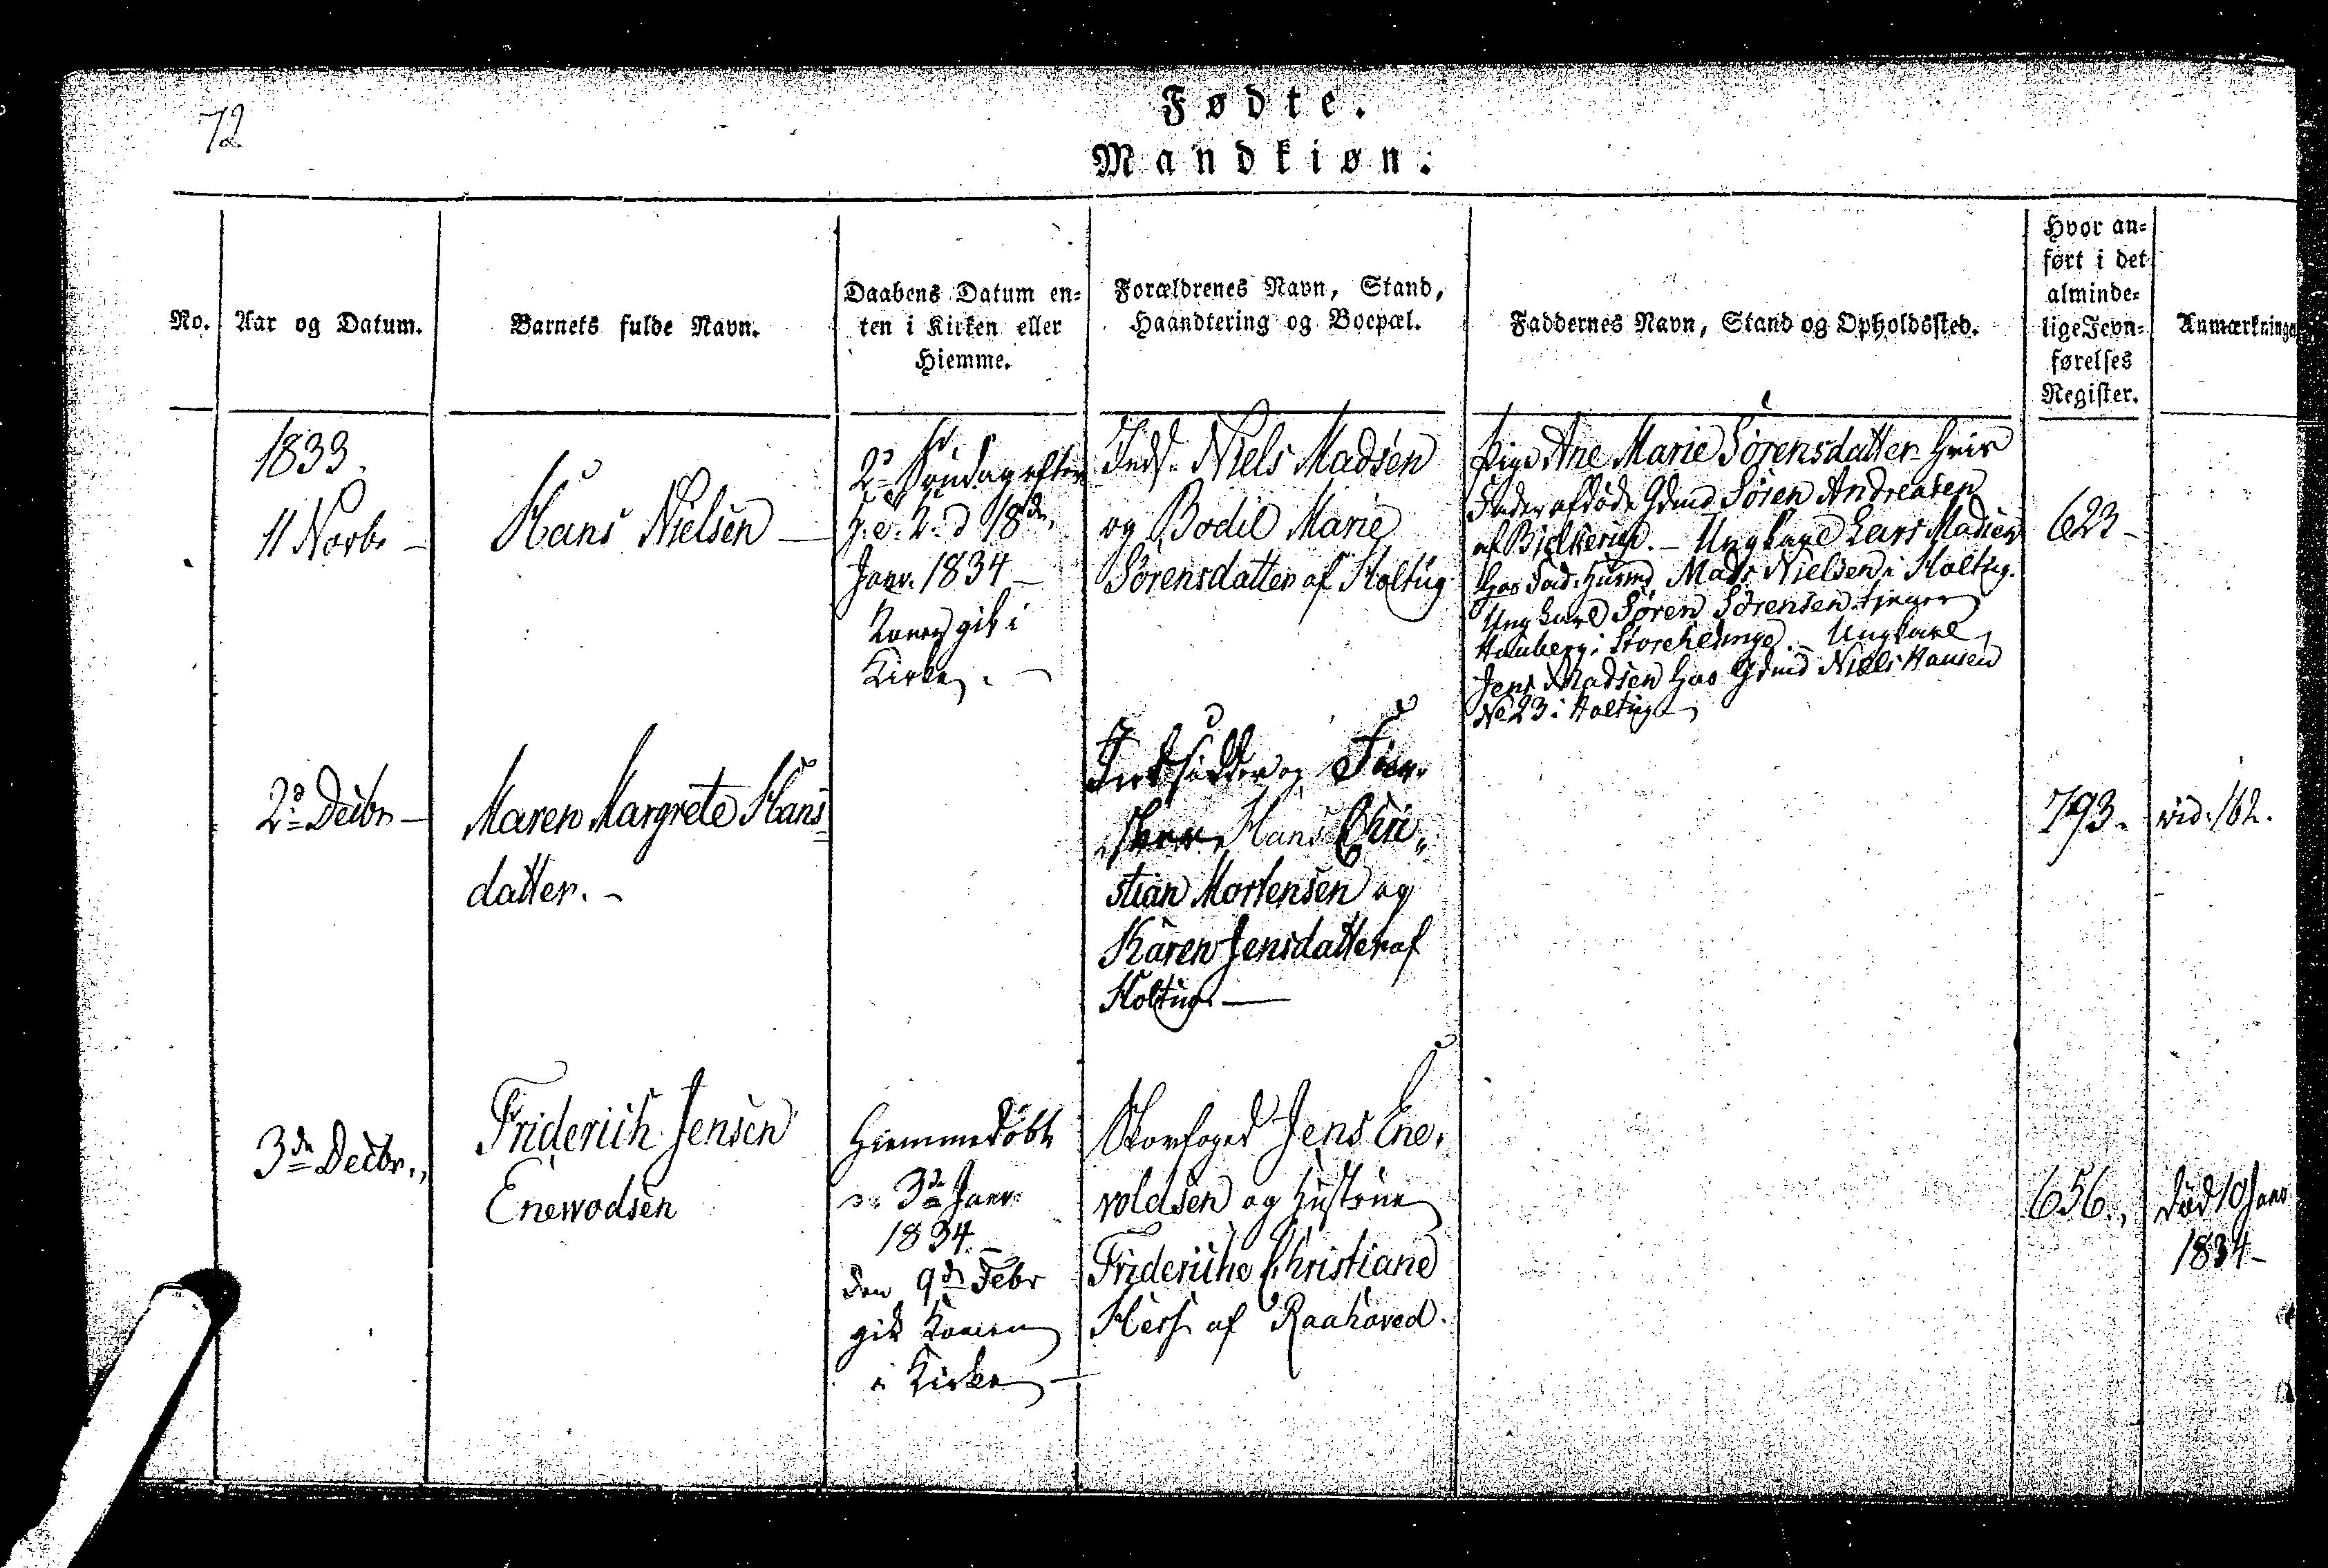 72
Fødte.
Mandkiøn.
No.
Aar og Datum.
Barnets fulde Navn.
Daabens Datum en-
ten i Kirken eller
Hiemme.
Forældrenes Navn, Stand,
Haandtering og Boepæl.
Faddernes Navn, Stand og Opholdssted.
Hvor an-
ført i det
alminde-
lige Jevn-
førelses
Register.
Anmærkninge
1833.
11 Novbr -
Hans Nielsen -
2den Søndag efter
H. 3. K. d 18de
Janv. 1834 -
Konen gik i
Kirke. -
Inds. Niels Madsen
og Bodil Marie
Sørensdatter af Holtug
Pige Ane Marie Sørensdatter hvis
Fader afdøde Gdmd Søren Andreasen
af Bielkerup. - Ungkarl Lars Madsen
hos Fad. Husmd Mads Nielsen i Holtug.
Ungkarl Søren Sørensen tjener
i Storeheddinge - Ungkarl
Jens Madsen hos Gdmd Niels Hansen
No 23 i Holtug
623 -
2d Decbr -
Maren Margrete Hans=
datter. -
Indsidder og Fier-
Hans Chri-
stian Mortensen og
Karen Jensdatter af
Holtug. -
793.
vid. 162.
3de Decbr.,
Friderich Jensen
Enewodsen
Hiemmedøbt
d. 3de Janv.
1834. -
den 9de Febr
gik Konen
i Kirke -
Skovfoged Jens Ene-
voldsen og Hustrue
Frideriche Christiane
af Raahoved.
656.,
død 10 Janv
1834 -